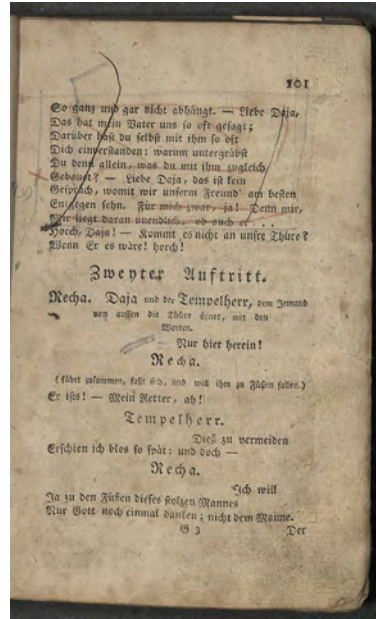 101
So ganz und gar nicht abhängt. — Liebe Daja,
Das hat mein Vater uns so oft gesagt;
Darüber hast du selbst mit ihm so oft
Dich einverstanden: warum untergräbst
Du denn allein, was du mit ihm zugleich
Gebauet? — Liebe Daja, das ist kein
Gespräch, womit wir unserm Freund' am besten
Entgegen sehn. Für mich zwar, ja! Denn mir,
Mir liegt daran unendlich, ob auch er . . .
Horch, Daja! — Kommt es nicht an unsre Thüre?
Wenn Er es wäre! horch!
Zweyter Auftritt.
Recha. Daja und der Tempelherr, dem Jemand
von aussen die Thüre öfnet, mit den
Worten.
Nur hier herein!
Recha.
(fährt zusammen, faßt sich, und will ihm zu Füßen fallen.)
Er ists! — Mein Retter, ah!
Tempelherr.
Dieß zu vermeiden
Erschien ich blos so spät: und doch —
Recha.
Ich will
Ja zu den Füßen dieses stolzen Mannes
Nur Gott noch einmal danken; nicht dem Manne.
G 3
Der